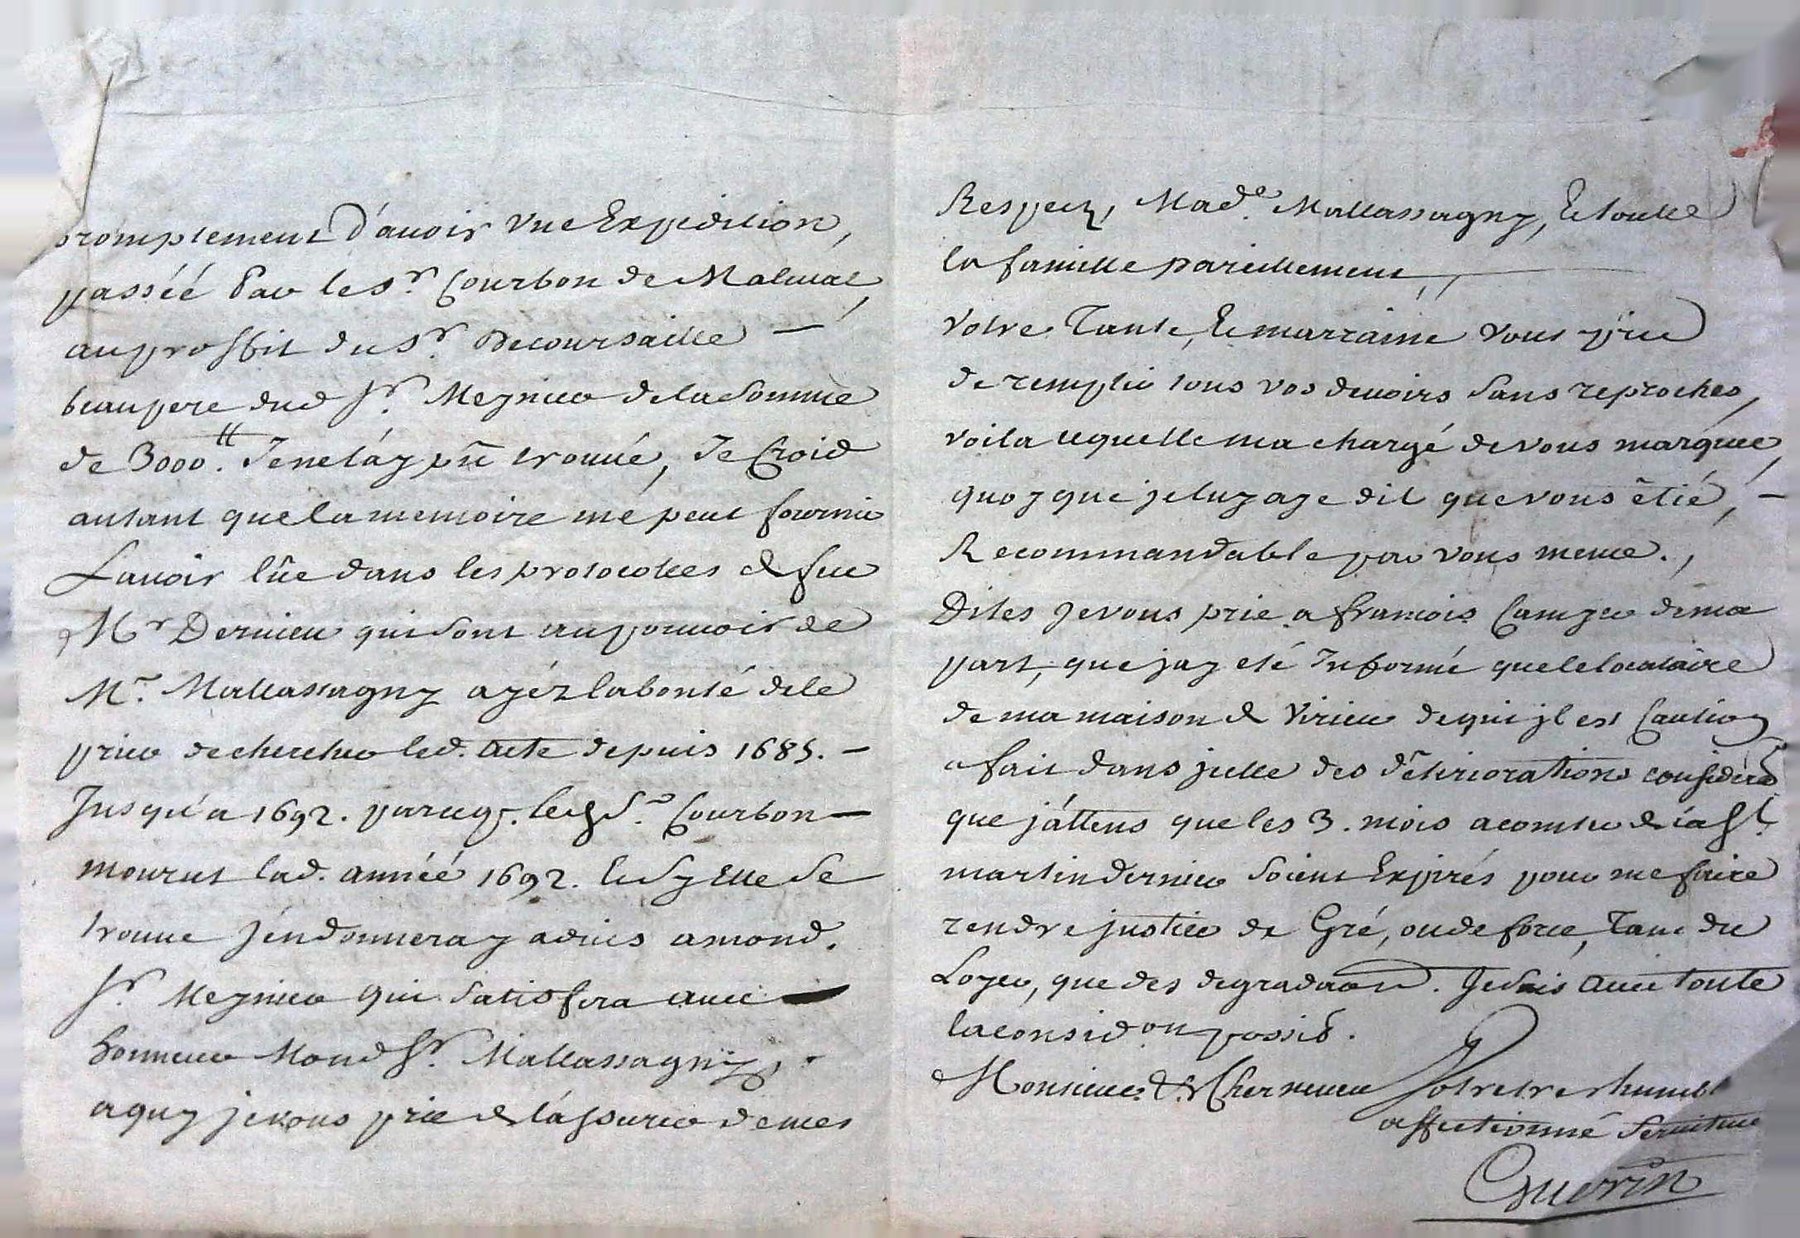 promptement D'auoir vne Expedition,
passéé Par le Sr. Courbon de Malual,
au proffit du Sr. Decoursaille —
beaupere dud Sr. Meynier de la Somme
de 3000.tt Je ne láy pñ trouué, Je Croid
autant que la memoire me peut fournir
Lauoir lûe dans les protocolles de feu
Mr Dernieu qui sont au pouuoir de
Mr. Mallassagny ayéz la bonté de le
prier de chercher led. acte depuis 1685. —
Jusqu'a 1692. parceq. led Sr. Courbon —
mourut lad. annéé 1692. le Sy Elle se
trouue j'en donneray aduis a mond.
Sr. Meynier qui satisfera auec
honneur Mond Sr. Mallassagny,
a quy je vous prie de lássurer de mes
Respectz, Made. Mallassagny, Et toutte
la famille pareillement,
Votre Tante, Et marraine vous prie
de remplir tous vos deuoirs sans reproches,
voila ce quelle ma chargé de vous marquer,
quoy que je luy aye dit que vous étié, —
Recommandable par vous meme.,
Dites je vous prie a francois Camyer de ma
part, que jay eté Informé que le locataire
de ma maison de Virieu de qui jl est Caution
a fait dans jcelle des déteriorations considéra
que j'attens que les 3. mois a comter de la St.
martin dernier soient Expirés pour me faire
rendre justice de Gré, ou de force, Tant du
Loyer, que des degradaon. Je suis auec toute
la considon possib.
Monsieur & Cher neueu Votre tres humbl
affectionné seruiteur
Guerin